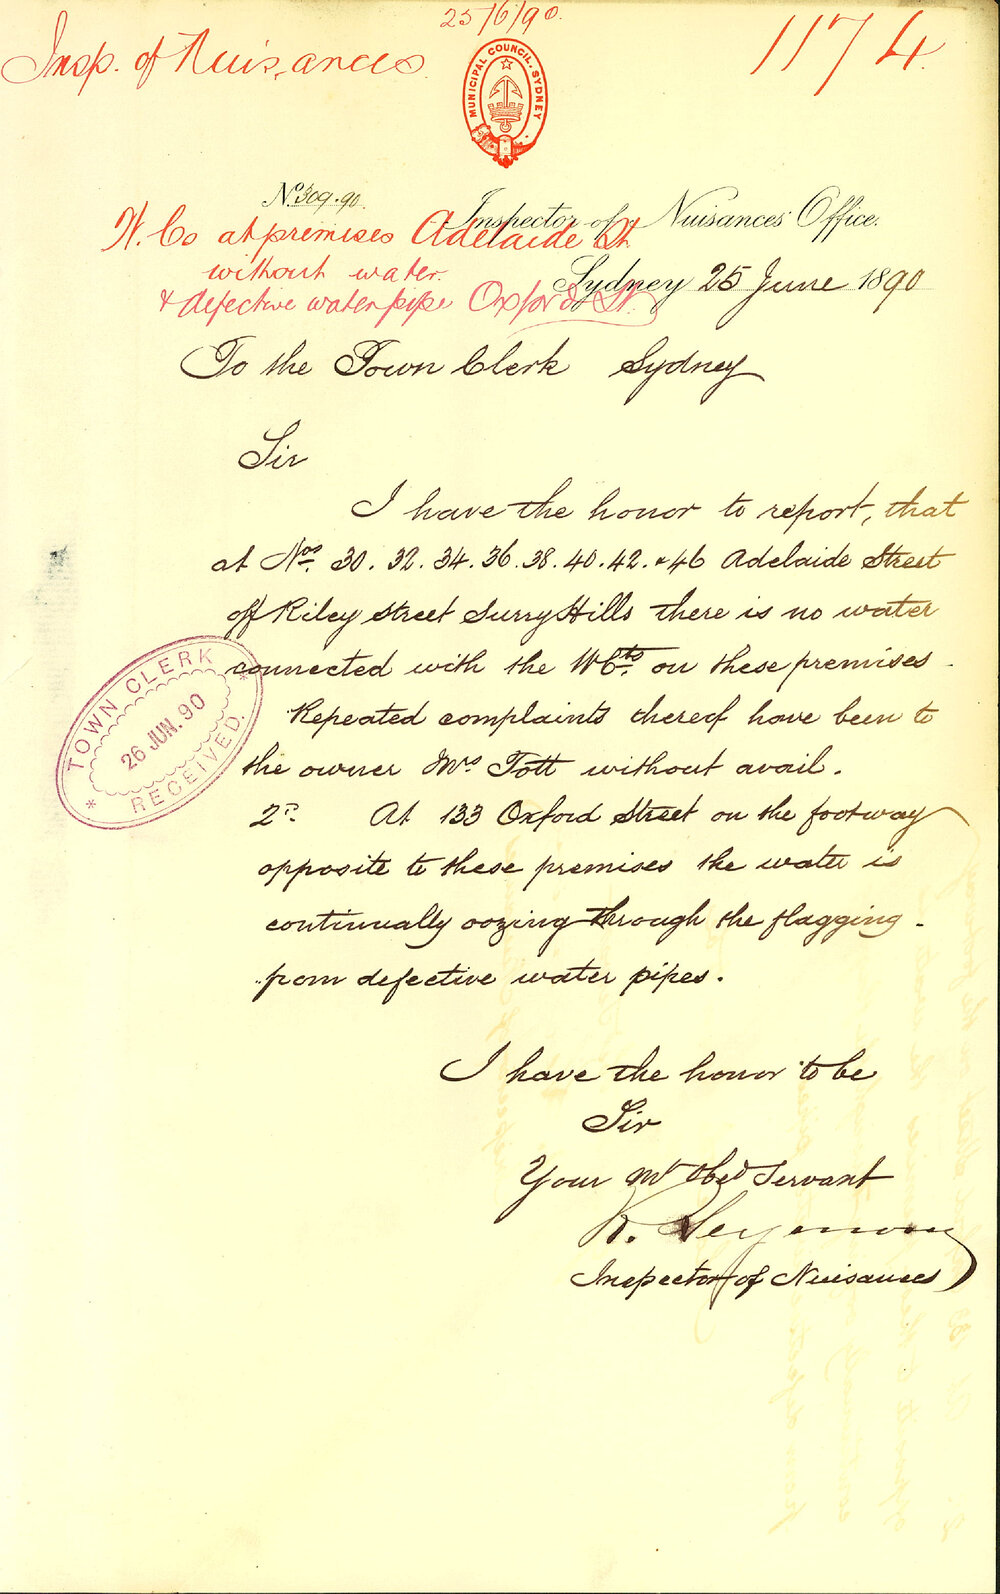 25/6/90.
Insp. of Nuisances
1174
MUNICIPAL COUNCIL, SYDNEY
No. 309.90.
Inspector of Nuisances Office.
W. Cs at premises Adelaide St.
without water.
Sydney 25 June 1890
& defective water pipe Oxford St.
To the Town Clerk Sydney
Sir
I have the honor to report, that
at Nos. 30. 32. 34. 36. 38. 40. 42. & 46 Adelaide Street
off Riley Street Surry Hills there is no water
connected with the WCts. on these premises.
Repeated complaints thereof have been to
the owner Mrs Tott without avail.
2nd. At 133 Oxford Street on the footway
opposite to these premises the water is
continually oozing through the flagging.
from defective water pipes.
TOWN CLERK
26 JUN. 90
RECEIVED.
I have the honor to be
Sir
Your Mt Obed Servant
R. Seymour
Inspector of Nuisances